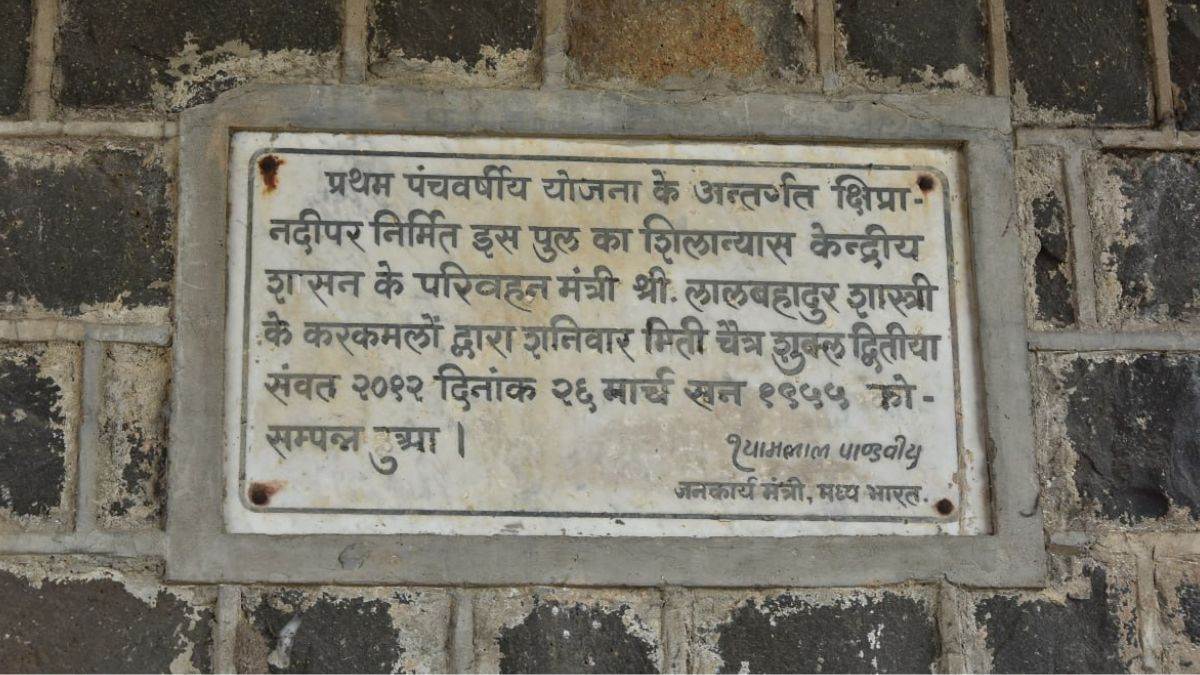 प्रथम पंचवर्षीय योजना के अन्तर्गत क्षिप्रा-
नदीपर निर्मित इस पुल का शिलान्यास केन्द्रीय
शासन के परिवहन मंत्री श्री. लालबहादुर शास्त्री
के करकमलों द्वारा शनिवार मिती चैत्र शुक्ल द्वितीया
संवत २०१२ दिनांक २६ मार्च सन १९५५ को-
सम्पन्न हुआ ।
श्यामलाल पाण्डवीय
जनकार्य मंत्री, मध्य भारत.